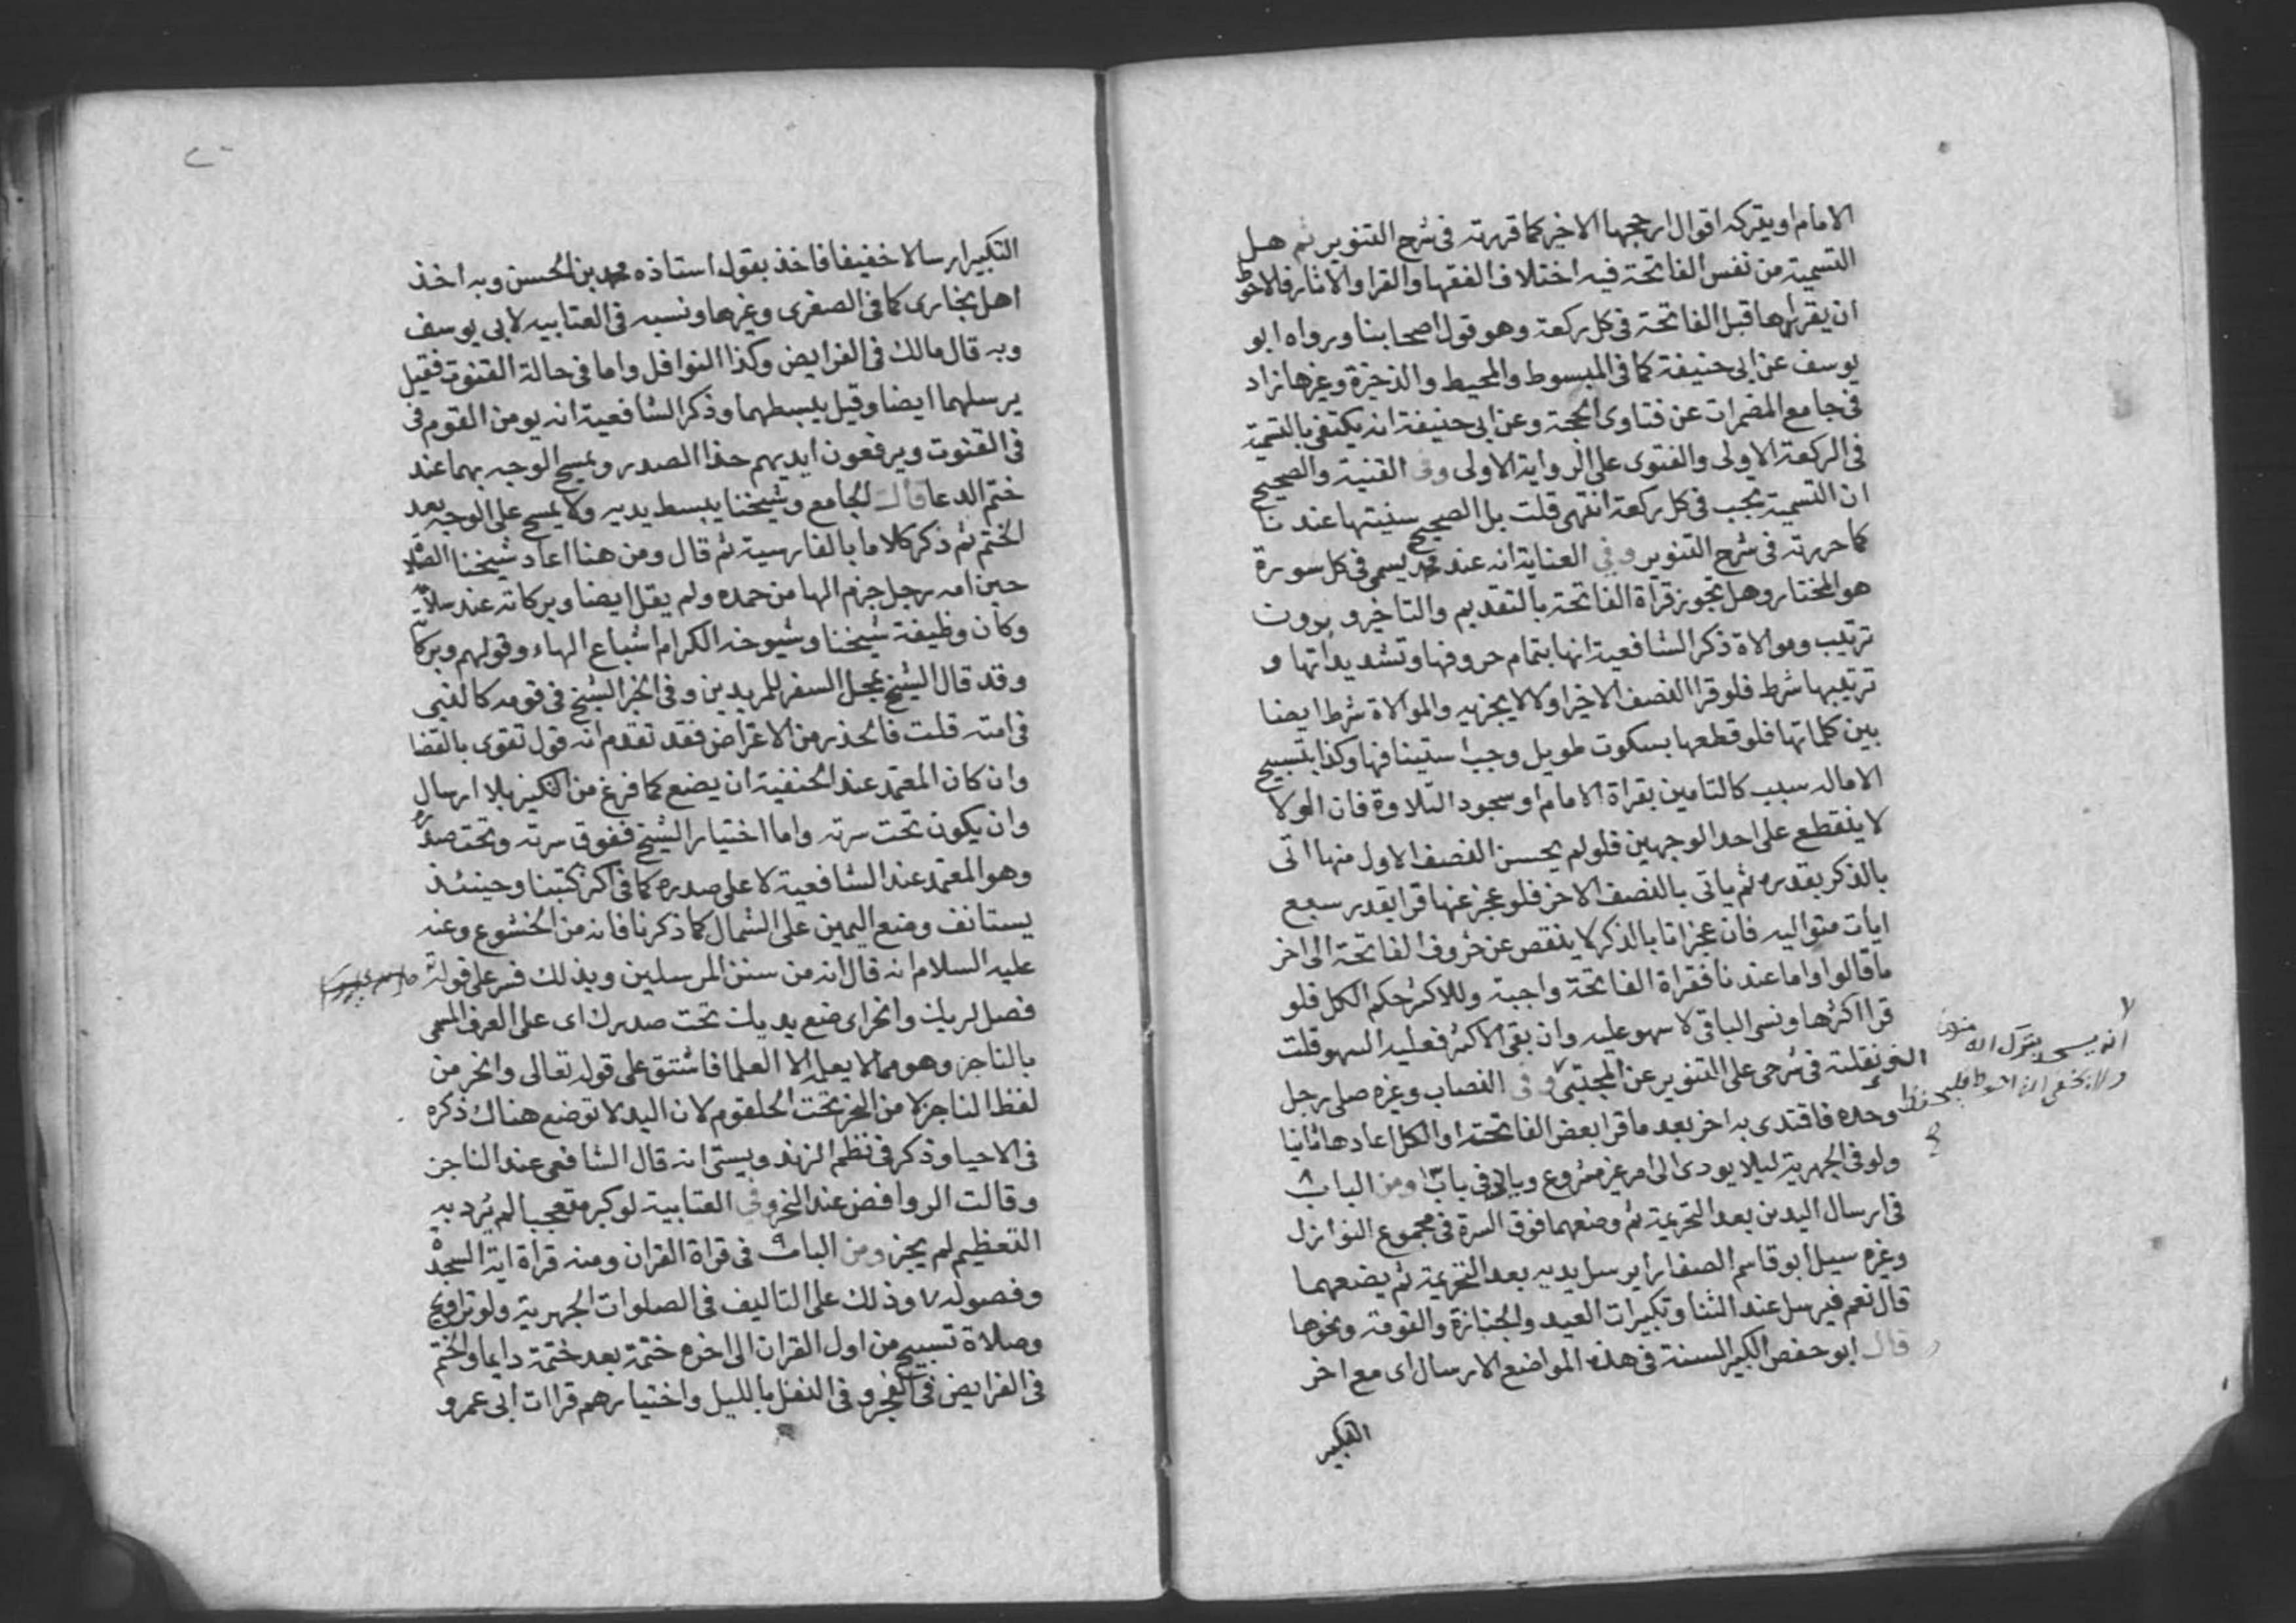 الامام او يتركه اقوال ارجحها الاخير كما قررته فى شرح التنوير ثم هل
التسمية من نفس الفاتحة فيه اختلاف الفقها والقرا والاثار فالاحوط
ان يقراها قبل الفاتحة فى كل ركعة وهو قول اصحابنا ورواه ابو
يوسف عن ابى حنيفة كما فى المبسوط والمحيط والذخيرة وغيرها زاد
فى جامع المضمرات عن فتاوى الحجة وعن ابى حنيفة انه يكتفى بالتسمية
فى الركعة الاولى والفتوى على الرواية الاولى وفى القنية والصحيح
ان التسمية يجب فى كل ركعة انتهى قلت بل الصحيح سنيتها عندنا
كما حررته فى شرح التنوير وفي العناية انه عند محمد يسمى فى كل سورة
هو المختار وهل تجوز قراة الفاتحة بالتقديم والتاخير وبدون
ترتيب وموالاة ذكر الشافعية انها بتمام حروفها وتشديداتها و
ترتيبها شرط فلو قرا النصف الاخير اولا لا يجزيه والموالاة شرط ايضا
بين كلماتها فلو قطعها بسكوت طويل وجب استينافها وكذا بتسبيح
الا ماله سبب كالتامين بقراة الامام او سجود التلاوة فان الولا
لا ينقطع على احد الوجهين فلو لم يحسن النصف الاول منها اتى
بالذكر بقدره ثم ياتى بالنصف الاخر فلو عجز عنها قرا بقدر سبع
ايات متواليه فان عجز اتا بالذكر لا ينقص عن حروف الفاتحة الى اخر
ما قالوا واما عندنا فقراة الفاتحة واجبة وللاكثر حكم الكل فلو
قرا اكثرها ونسى الباقى لا سهو عليه وان بقى الاكثر فعليه السهو قلت
نقلته فى شرحى على التنوير عن المجتبى وفى النصاب وغيره صلى رجل
وحده فاقتدى به اخر بعد ما قرا بعض الفاتحة او الكل اعادها ثانيا
ولو فى الجهرية ليلا يودى الى امر غير مشروع وياتى فى باب ومن الباب ٨
فى ارسال اليدين بعد التحريمة ثم وضعهما فوق السرة فى مجموع النوازل
وغيره سيل ابو قاسم الصفار ايرسل يديه بعد التحريمة ثم يضعهما
قال نعم فيرسل عند الثنا وتكبيرات العيد والجنازة والقومة ونحوها
قال ابو حفص الكبير السنة فى هذه المواضع الارسال اى مع اخر
التكبير
انه يسجد بترك اية منها
ولا يخفى انه احوط فليحفظ
التكبير ارسالا خفيفا فاخذ بقول استاذه محمد بن الحسن وبه اخذ
اهل بخارى كما فى الصغرى وغيرها ونسبه فى العتابيه لابى يوسف
وبه قال مالك فى الفرايض وكذا النوافل واما فى حالة القنوت فقيل
يرسلهما ايضا وقيل يبسطهما وذكر الشافعية انه يومن القوم فى
فى القنوت ويرفعون ايديهم حذا الصدر ويمسح الوجه بهما عند
ختم الدعا قالت الجامع وشيخنا يبسط يديه ولا يمسح على الوجه بعد
الختم ثم ذكر كلاما بالفارسية ثم قال ومن هنا اعاد شيخنا الصلاة
حين امه رجل جزم الها من حمده ولم يقل ايضا وبركاته عند سلامه
وكان وظيفة شيخنا وشيوخه الكرام اشباع الهاء وقولهم وبركاته
وقد قال الشيخ عجل السفر للمريدين وفى الخبر الشيخ فى قومه كالنبى
فى امته قلت فالحذر من الاعتراض فقد تقدم انه قول تقوى بالقضا
وان كان المعتمد عند الحنفية ان يضع كما فرغ من التكبير بلا ارسال
وان يكون تحت سرته واما اختيار الشيخ ففوق سرته وتحت صدره
وهو المعتمد عند الشافعية لا على صدره كما فى اكثر كتبنا وحينئذ
يستانف وضع اليمين على الشمال كما ذكرنا فانه من الخشوع وعنه
عليه السلام انه قال انه من سنن المرسلين وبذلك فسر على قوله
فصل لربك وانحر اى ضع يديك تحت صدرك اى على العرق المسمى
بالناحر وهو مما لا يعلمه الا العلما فاشتق على قوله تعالى وانحر من
لفظ الناحر لا من النحر تحت الحلقوم لان اليد لا توضع هناك ذكره
فى الاحيا وذكر فى نظم الزندويستى انه قال الشافعى عند الناحر
وقالت الروافض عند النحر وفي العتابية لو كبر متعجبا لم يرد به
التعظيم لم يجز ومن الباب ٩ فى قراة القران ومنه قراة اية السجدة
وفصوله ٧ وذلك على التاليف فى الصلوات الجهرية ولو تراويح
وصلاة تسبيح من اول القران الى اخره ختمة بعد ختمة دايما والختم
فى الفرايض فى الفجر وفى النفل بالليل واختيارهم قراات ابى عمرو